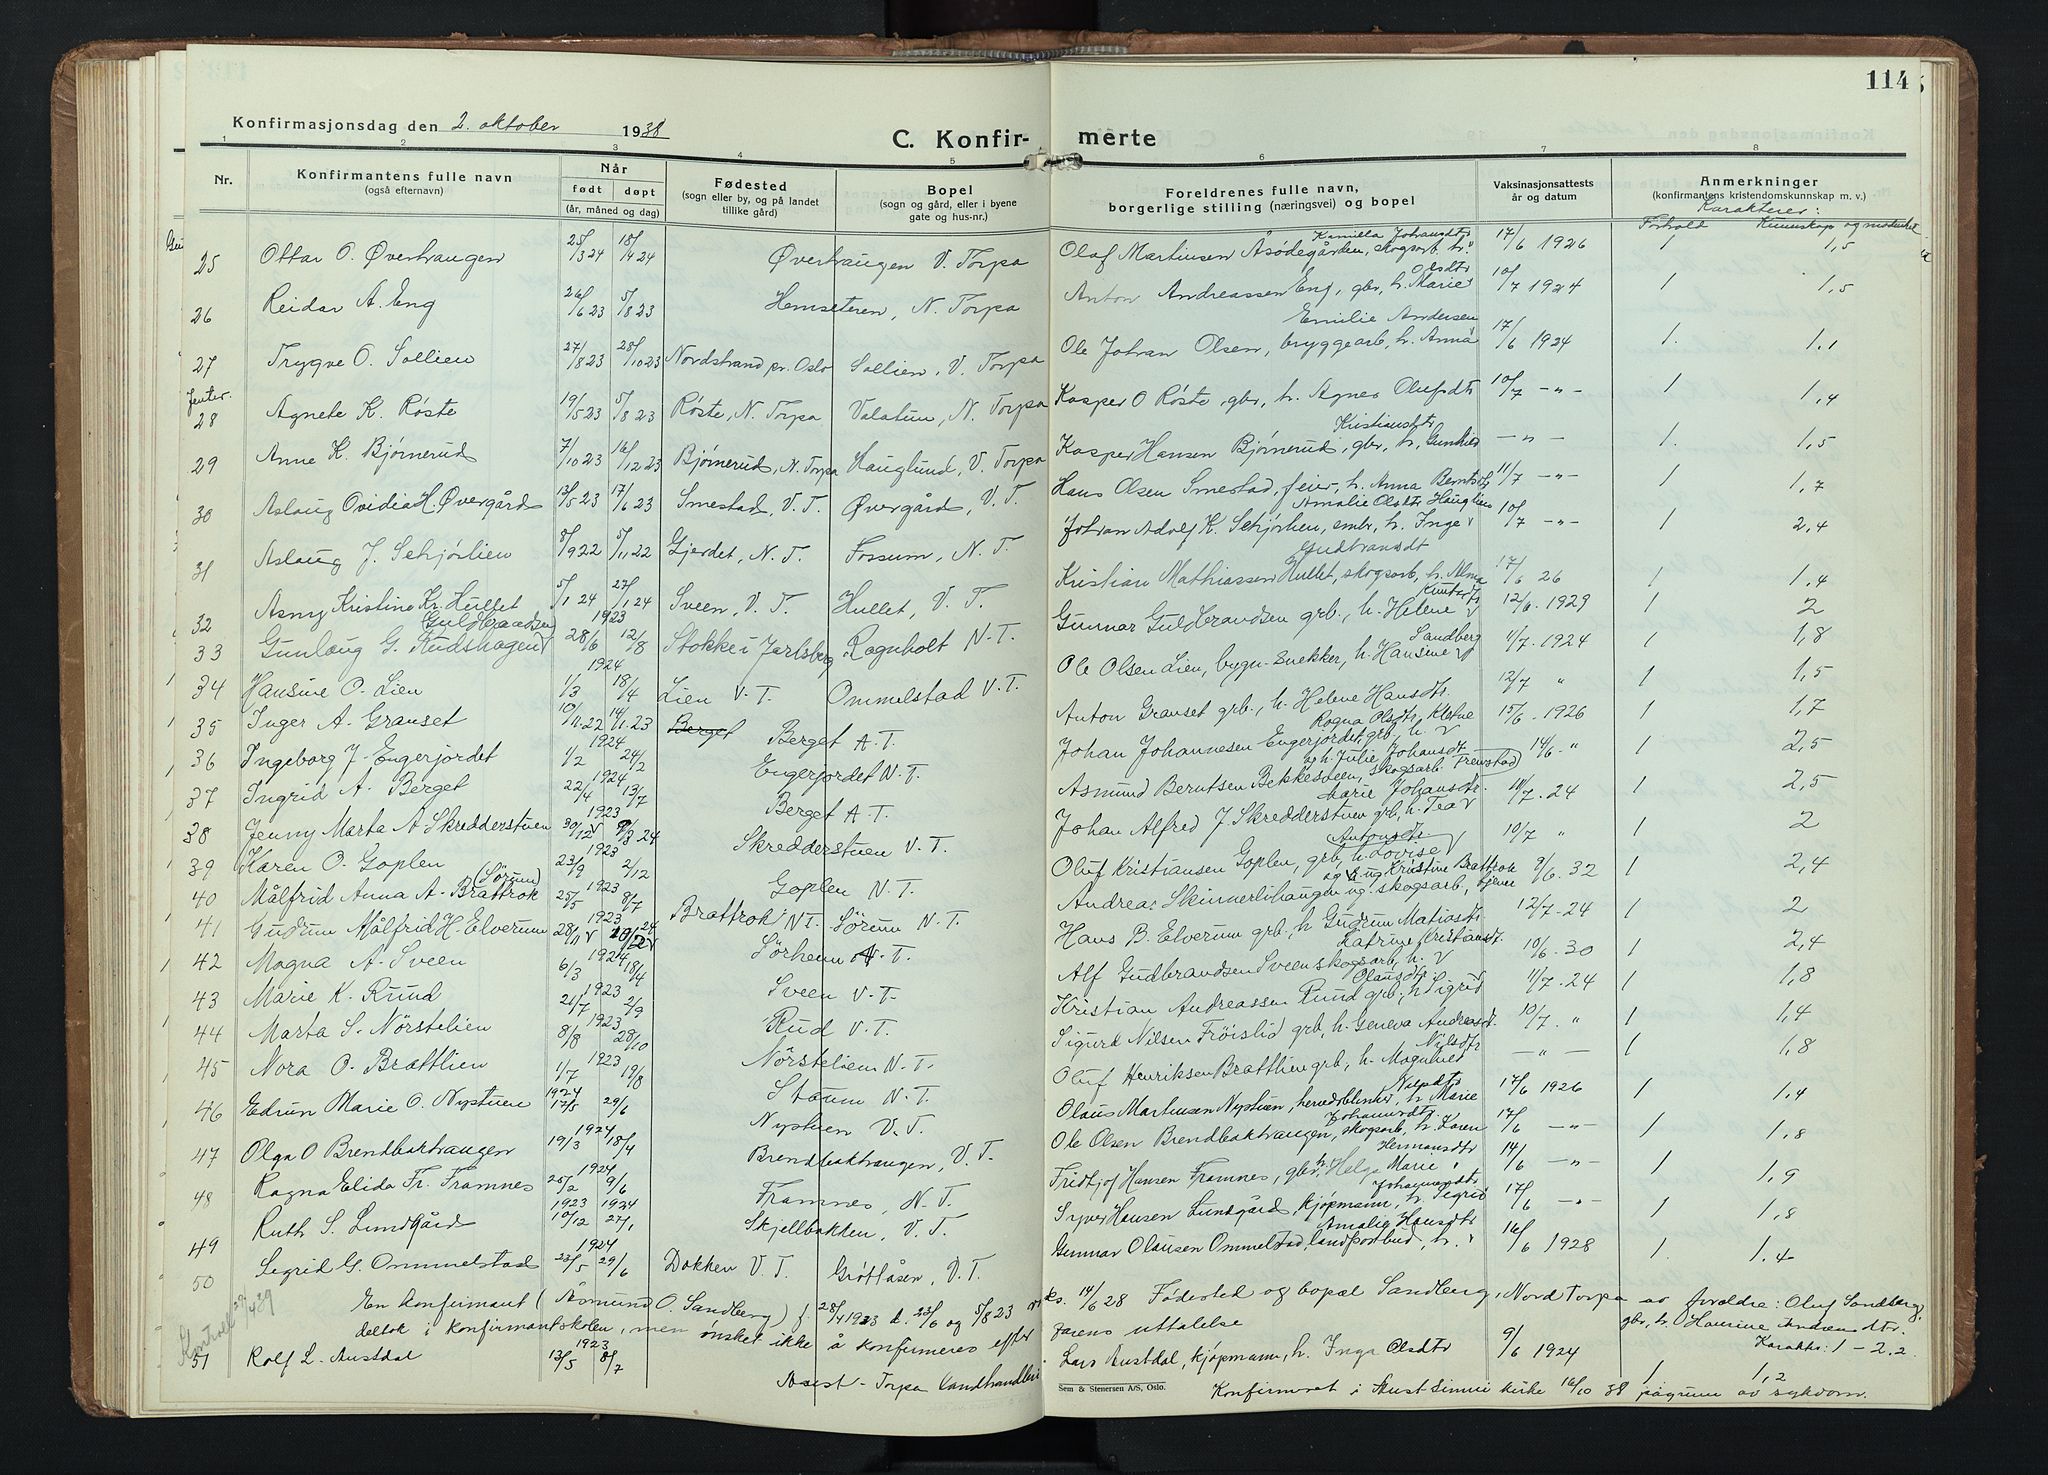 114
Konfirmasjonsdag den 2. oktober 1938
C. Konfirmerte
1 2 3 4 5 6 7 8
Nr. Konfirmantens fulle navn (også efternavn) Når født døpt (år, måned og dag) Fødested (sogn eller by, og på landet tillike gård) Bopel (sogn og gård, eller i byene gate og hus-nr.) Foreldrenes fulle navn, borgerlige stilling (næringsvei) og bopel Vaksinasjonsattests år og datum Anmerkninger (konfirmantens kristendomskunnskap m. v.)
Karakterer:
Forhold Kunnskap og modenhet
25 Ottar O. Øverhaugen 25/3 24 18/4 24 Øverhaugen V. Torpa Olaf Martinsen Åsødegården, skogsarb. h. Kamilla Johansdtr 17/6 1926 1 1,5
26 Reidar A. Eng 26/6 23 5/8 23 Hemseteren, N. Torpa Anton Andreassen Eng, gbr, h. Marie Olsdtr 10/7 1924 1 1,5
27 Trygve O. Sollien 27/8 23 28/10 23 Nordstrand pr. Oslo Sollien, V. Torpa Ole Johan Olsen, bryggearb, h. Anna Emilie Andersen 17/6 1924 1. 1.1
Jenter.
28 Agnete K. Røste 19/5 23 5/8 23 Røste, N. Torpa Valatun, N. Torpa Kasper O Røste, gbr, h. Agnes Olufsdtr 10/7 -"- 1 1,4
29 Anne K. Bjørnerud 7/10 23 16/12 23 Bjørnerud, N. Torpa Hauglund, V. Torpa Kasper Hansen Bjørnerud, gbr, h. Gunhild Kristiansdtr -"- 1. 1,5
30 Aslaug Ovidia H. Øvergård 13/5 23 17/6 23 Smestad, V. T. Øvergård, V. T. Hans Olsen Smestad, feier, h. Anna Berntsdtr 11/7 -"- 1 1,7
31 Aslaug J. Schjørlien 8/9 22 5/11 22 Gjerdet, N. T. Fossum, N. T. Johan Adolf K. Schjørlien, smbr, h. Inga Amalie Olsdtr Hauglien 10/7 -"- 1 2,4
32 Asny Kristine Kr. Hullet 5/1 24 27/1 24 Sveen, V. T. Hullet, V. T. Kristian Mathiassen Hullet, skogsarb, h. Alma Gudbransdt 17/6 26 1 1,4
33 Gunlaug G. Rudshagen (Guldbrandsen) 1923 28/6 12/8 Stokke i Jarlsberg Ragnholt N. T. Gunnar Guldbrandsen grb., h. Helene Knutsdtr 12/6. 1929 1 2
34 Hansine O. Lien 1924 1/3 18/4 Lien V. T. Ommelstad V. T. Ole Olsen Lien, bygn-snekker, h. Hansine Sandberg 11/7. 1924 1 1,8
35 Inger A. Granset 10/11.22 14/1.23 Berget Berget A. T. Anton Granset grb., h. Helene Hansdtr. 12/7 " 1 1,5
36 Ingeborg J. Engerjordet 1924 1/2 24/2 Engerjordet N. T. Johan Johannesen Engerjordet, grb, h. Ragna Olsdtr. Kletve 15/6. 1926 1 1,7
37 Ingrid A. Berget 1924 22/4 13/7 Berget A. T. Asmund Berntsen Bekkesteen, skogsarb. og h. Julie Johansdtr. 14/6. " 1 2,5
38 Jenny Marta A Skredderstuen 1923 30/12 9/3 24 Skredderstuen V. T. Johan Alfred J. Skredderstuen grb, h. Tea Marie Johansdtr. 11/7. 24 1 2,5
39 Karen O. Goplen 1923 23/9 2/12 Goplen N. T. Oluf Kristiansen Goplen, grb, h. Lovise Antonsdtr. 10/7 " 1 2
40 Målfrid Anna A. Brattrok (Sørum) 1923 25/5 8/7 Brattrok N. T. Sörum N. T. Andreas Skinnerlihaugen ug. skogsarb, og ug Kristine Brattrok 9/6. 32 1 2,4
41 Gudrun Målfrid H. Elverum 1923 28/11 10/2 24 Sörheim N. T. Hans B. Elverum grb, h Gudrun Matiasdtr 12/7. 24 1 2
42 Magna A. Sveen 1924 6/3 18/4 Sveen V. T. Alf Gudbrandsen Sveen skogsarb, h. Katrine Kristiansdtr. 10/6. 30 1 2,4
43 Marie K. Ruud 1923 21/7 2/9 Rud V. T. Kristian Andreassen Ruud grb, h Sigrid Olausdtr 11/7. 24 1 1,8
44 Marta S. Nörstelien 1923 8/8 28/10 Nörstelien N. T. Sigurd Nilsen Fröislid grb, h. Geneva Andreasdtr. 10/7. " 1 1,4
45 Nora O. Brattlien 1923 1/7 19/8 Staum N. T. Oluf Henriksen Brattlien grb, h. Magnhild Nilsdtr -"- 1 1,8
46 Edrun Marie O. Nystuen 1924 17/5 29/6 Nystuen V. T. Olaus Martinsen Nystuen, h. Marie 17/6 1926 1 1,4
47 Olga O Brendbakhaugen 1924 19/3 18/4 Brendbakhaugen, V. T. Ole Olsen Brendbakhaugen, skogsarb, h. Karen Johansdtr. 17/6 -"- 1 1,8
48 Ragna Elida Fr. Framnes 1924 25/2 9/6 Framnes, N. T. Fridtjof Hansen Framnes, gbr, h. Helga Marie Hermansdtr 14/6 -"- 1 1,9
49 Ruth S. Lundgård 1923 1924 10/12 27/1 Skjellbakken, V. T. Syver Hansen Lundgård, kjøpmann, h. Sigrid Johannesdtr 17/6 -"- 1 1,8
50 Sigrid G. Ommelstad 1924 23/5 29/6 Dokken V. T. Grøtåsen, V. T. Gunnar Olausen Ommelstad, landpostbud, h. Amalie Hansdtr 16/6 1928 1. 1.4
Kontroll 29/4 39
En konfirmant (Åsmund O. Sandberg) f. 28/4 1923 d. 23/6 og 5/8 23 14/6 28 Fødested og bopæl Sandberg, Nord Torpa av foreldre: Oluf Sandberg,
deltok i konfirmantskolen, men ønsket ikke å konfirmeres efter farens uttalelse gbr, h. Hansine Andersdtr. Karakt: 1 - 2.2.
51 Rolf L. Austdal 1923 13/5 8/7 Aust-Torpa Landhandleri Lars Austdal, kjøpmann, h. Inga Olsdtr 9/6 1924 1 1,2
Sem & Stenersen A/S, Oslo.
Konfirmeret i Aust Sinni kirke 16/10 38 pågrunn av sykdom.